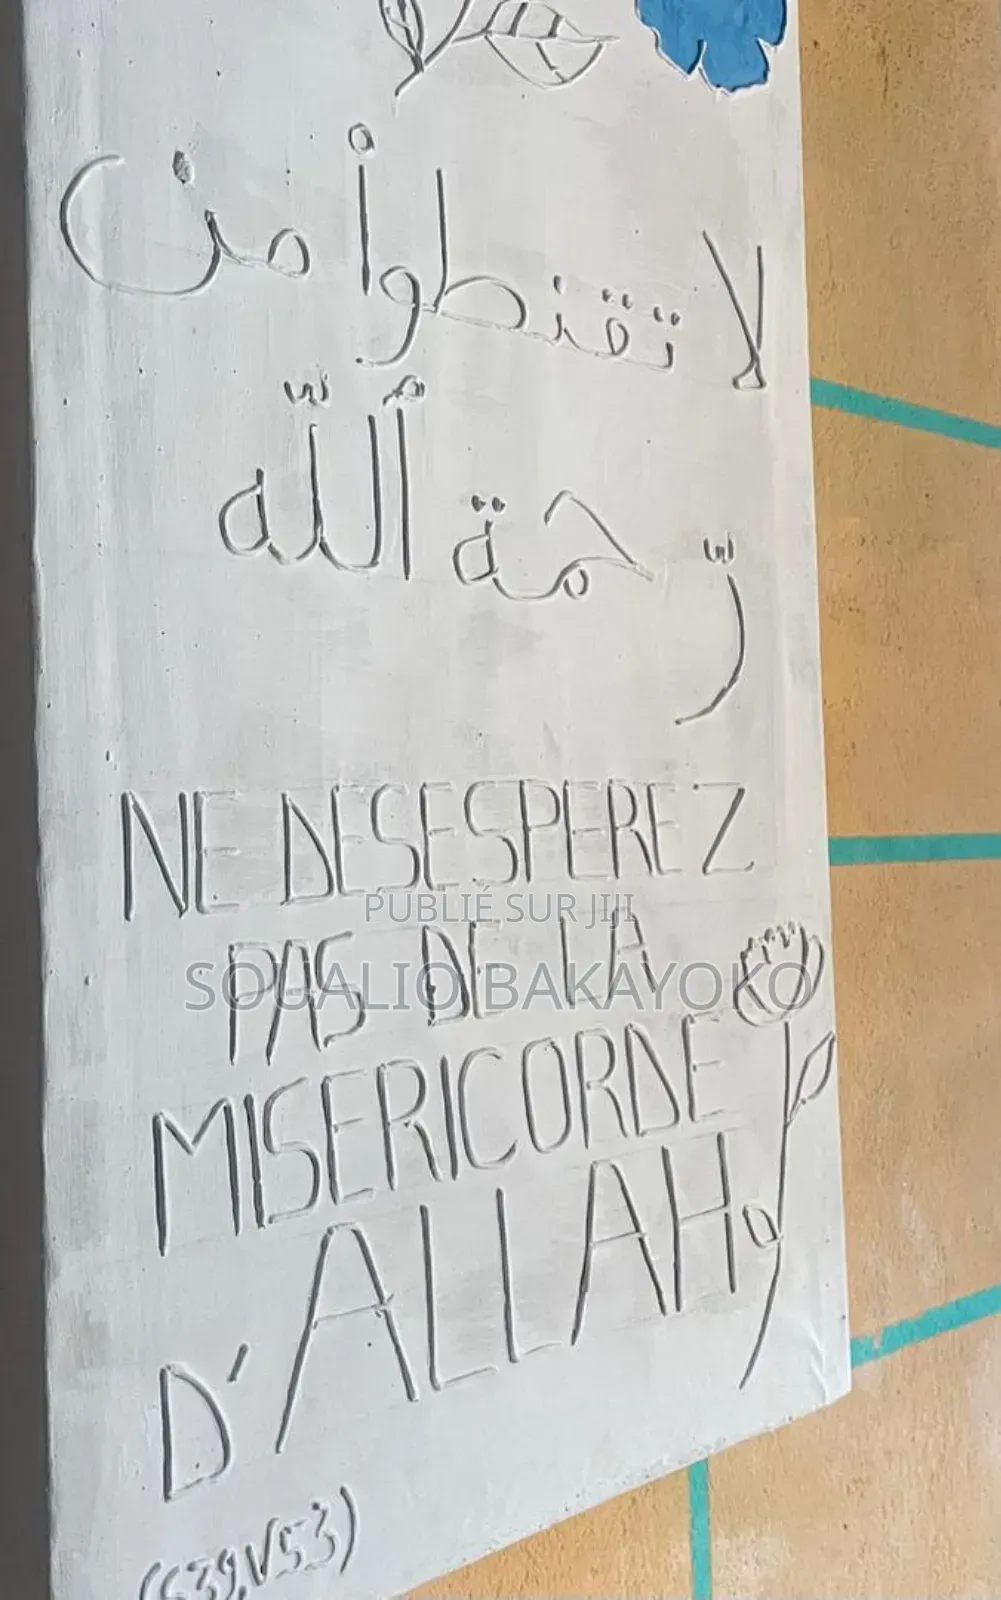 لا تقنطوأ من
رّحمة ٱللّه
NE DESESPEREZ
PAS DE LA
MISERICORDE
D'ALLAH
(S39,V53)
PUBLIÉ SUR JIJI
SOUALIO BAKAYOKO